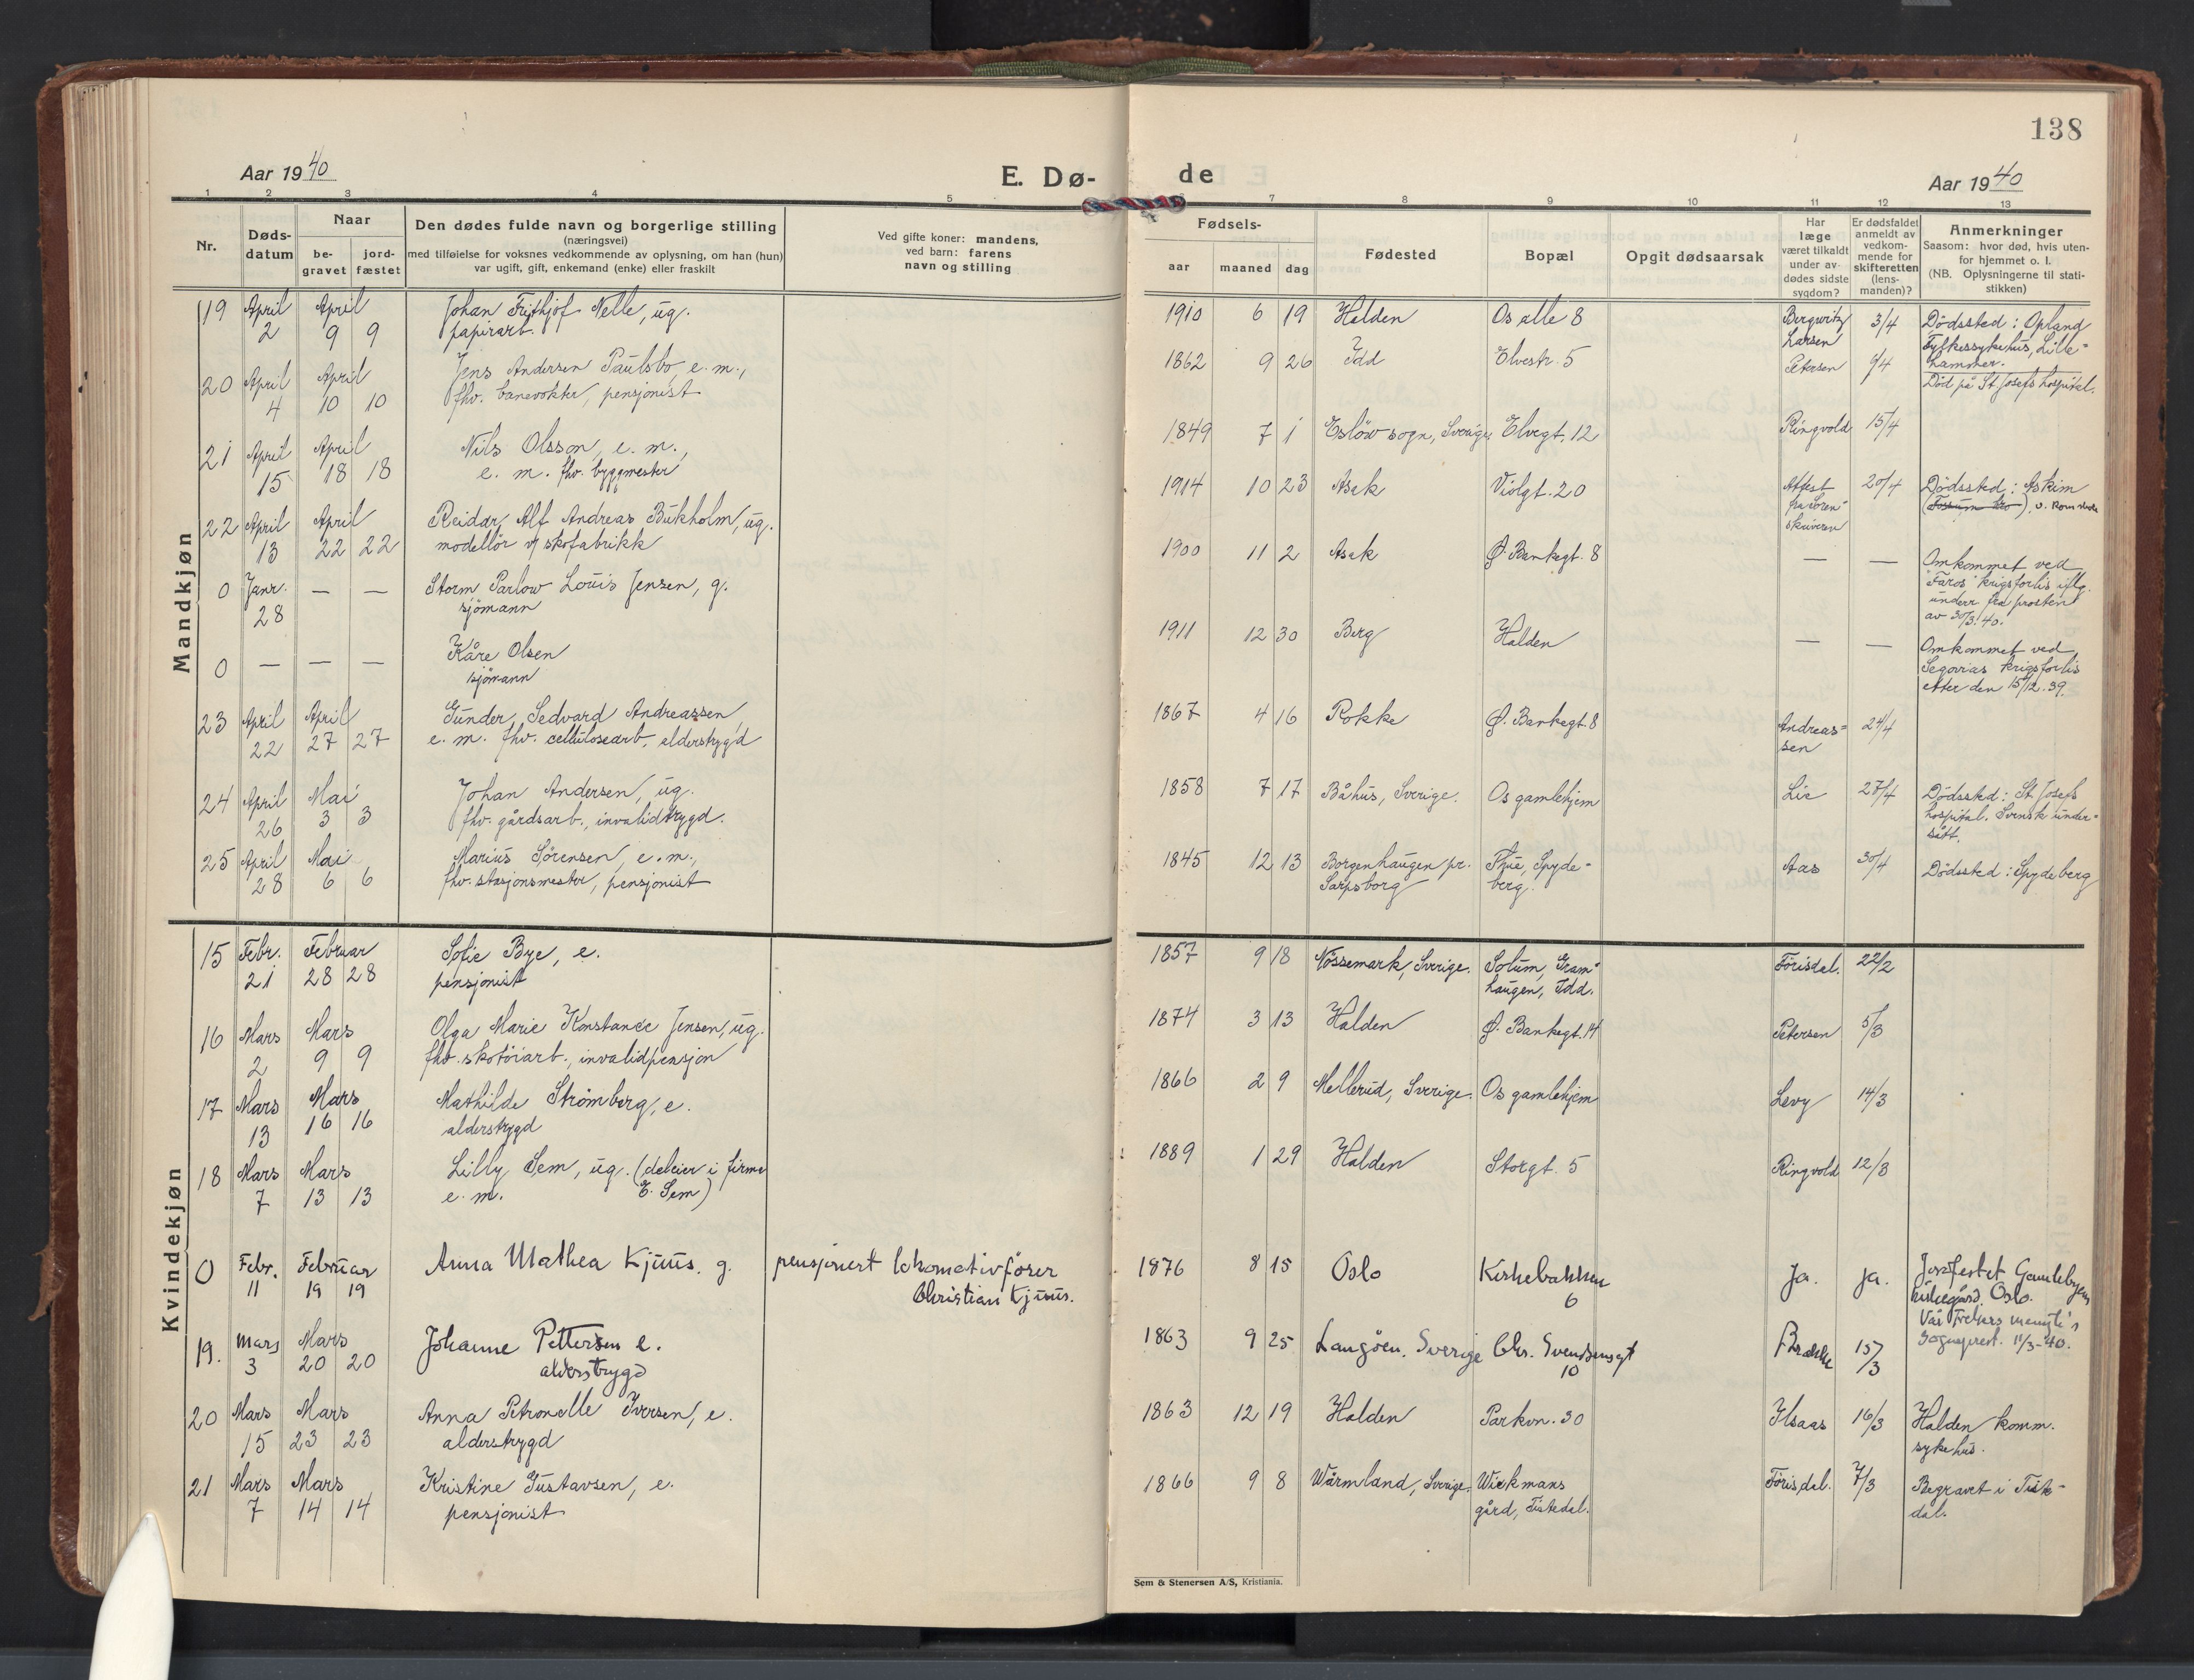 138
Aar 1940
E. Dø-
de
Aar 1940
1 2 3 4 5 7 8 9 10 11 12 13
Nr.
Døds-
datum
Naar
be-
gravet
jord-
fæstet
Den dødes fulde navn og borgerlige stilling
(næringsvei)
med tilføielse for voksnes vedkommende av oplysning, om han (hun)
var ugift, gift, enkemand (enke) eller fraskilt
Ved gifte koner: mandens,
ved barn: farens
navn og stilling
Fødsels-
aar maaned dag
Fødested
Bopæl
Opgit dødsaarsak
Har
læge
været tilkaldt
under av-
dødes sidste
sygdom?
Er dødsfaldet
anmeldt av
vedkom-
mende for
skifteretten
(lens-
manden)?
Anmerkninger
Saasom: hvor død, hvis uten-
for hjemmet o. l.
(NB. Oplysningerne til stati-
stikken)
Mandkjøn
19 April April Johan Frithjof Nelle, ug. 1910 6 19 Halden Os alle 8 Bergwitz 3/4 Dødssted: Opland
2 9 9 papirarb. Larsen Fylkessykehus, Lille-
hammer.
20 April April Jens Andersen Paulsbo, e. m., 1862 9 26 Idd Elvestr. 5 Petersen 9/4 Død på St. Josefs hospital.
4 10 10 fhv. banevokter, pensjonist
21 April April Nils Olsson, e. m., 1849 7 1 Eslöw sogn, Sverige Elvegt. 12 Ringvold 15/4
15 18 18 e. m. fhv. byggmester
22 April April Reidar Alf Andreas Bukholm, ug. 1914 10 23 Asak Violgt. 20 Attest 20/4 Dødssted: Askim
13 22 22 modellør v/ skofabrikk fra Soren- (Fossum bro)
skriveren
0 Janr. — — Storm Parlow Louis Jensen, g. 1900 11 2 Asak Ø. Bankegt. 8 — — Omkommet ved
28 sjømann "Faros" krigsforlis iflg.
underr. fra prosten
av 30/3. 40.
0 — — — Kåre Olsen 1911 12 30 Berg Halden — — Omkommet ved
sjømann Segovias krigsforlis
etter den 15/12. 39.
23 April April Gunder Sedvard Andreassen 1867 4 16 Rokke Ø. Bankegt. 8 Andreas- 24/4
22 27 27 e. m. fhv. cellulosearb., alderstrygd sen
24 April Mai Johan Andersen, ug. 1858 7 17 Båhus, Sverige. Os gamlehjem Lie 27/4 Dødssted: St. Josefs
26 3 3 fhv. gårdsarb., invalidtrygd. hospital. Svensk under-
sått.
25 April Mai Marius Sørensen, e. m., 1845 12 13 Borgenhaugen pr. Thue, Spyde- Aas 30/4 Dødssted: Spydeberg
28 6 6 fhv. stasjonsmester, pensjonist Sarpsborg berg.
Kvindekjøn
15 Febr. Februar Sofie Bye, e. 1857 9 18 Nössemark, Sverige. Solum, Gram- Förisdal. 22/2
21 28 28 pensjonist haugen, Idd.
16 Mars Mars Olga Marie Konstance Jensen, ug. 1874 3 13 Halden Ø. Bankegt. 14 Petersen 5/3
2 9 9 fhv. skotöiarb., invalidpensjon
17 Mars Mars Mathilde Strömberg, e. 1866 2 9 Mellerud, Sverige. Os gamlehjem Levy 14/3
13 16 16 alderstrygd
18 Mars Mars Lilly Sem, ug. (deleier i firma 1889 1 29 Halden Storgt. 5 Ringvold 12/3
7 13 13 e. m. E. Sem)
0 Febr. Februar Anna Mathea Kjuus. g. pensjonert lokomotivfører 1876 8 15 Oslo Kirkebakken Ja. ja. Jordfestet Gamlebyens
11 19 19 Christian Kjuus. 6 kirkegård. Oslo.
Vår Frelsers menigh.'s
Sogneprest. 11/3-40.
19. Mars Mars Johanne Pettersen e. 1863 9 25 Langöen. Sverige Chr. Svendsensgt Brække 15/3
3 20 20 alderstrygd 10
20 Mars Mars Anna Petronelle Iversen, e. 1863 12 19 Halden Parkvn. 30 Ilsaas 16/3 Halden komm.
15 23 23 alderstrygd sykehus.
21 Mars Mars Kristine Gustavsen, e. 1866 9 8 Wärmland, Sverige. Wiekmans Förisdal. 7/3 Begravet i Tiste-
7 14 14 pensjonist gård, Tistedal. dal.
Sem & Stenersen A/S, Kristiania.